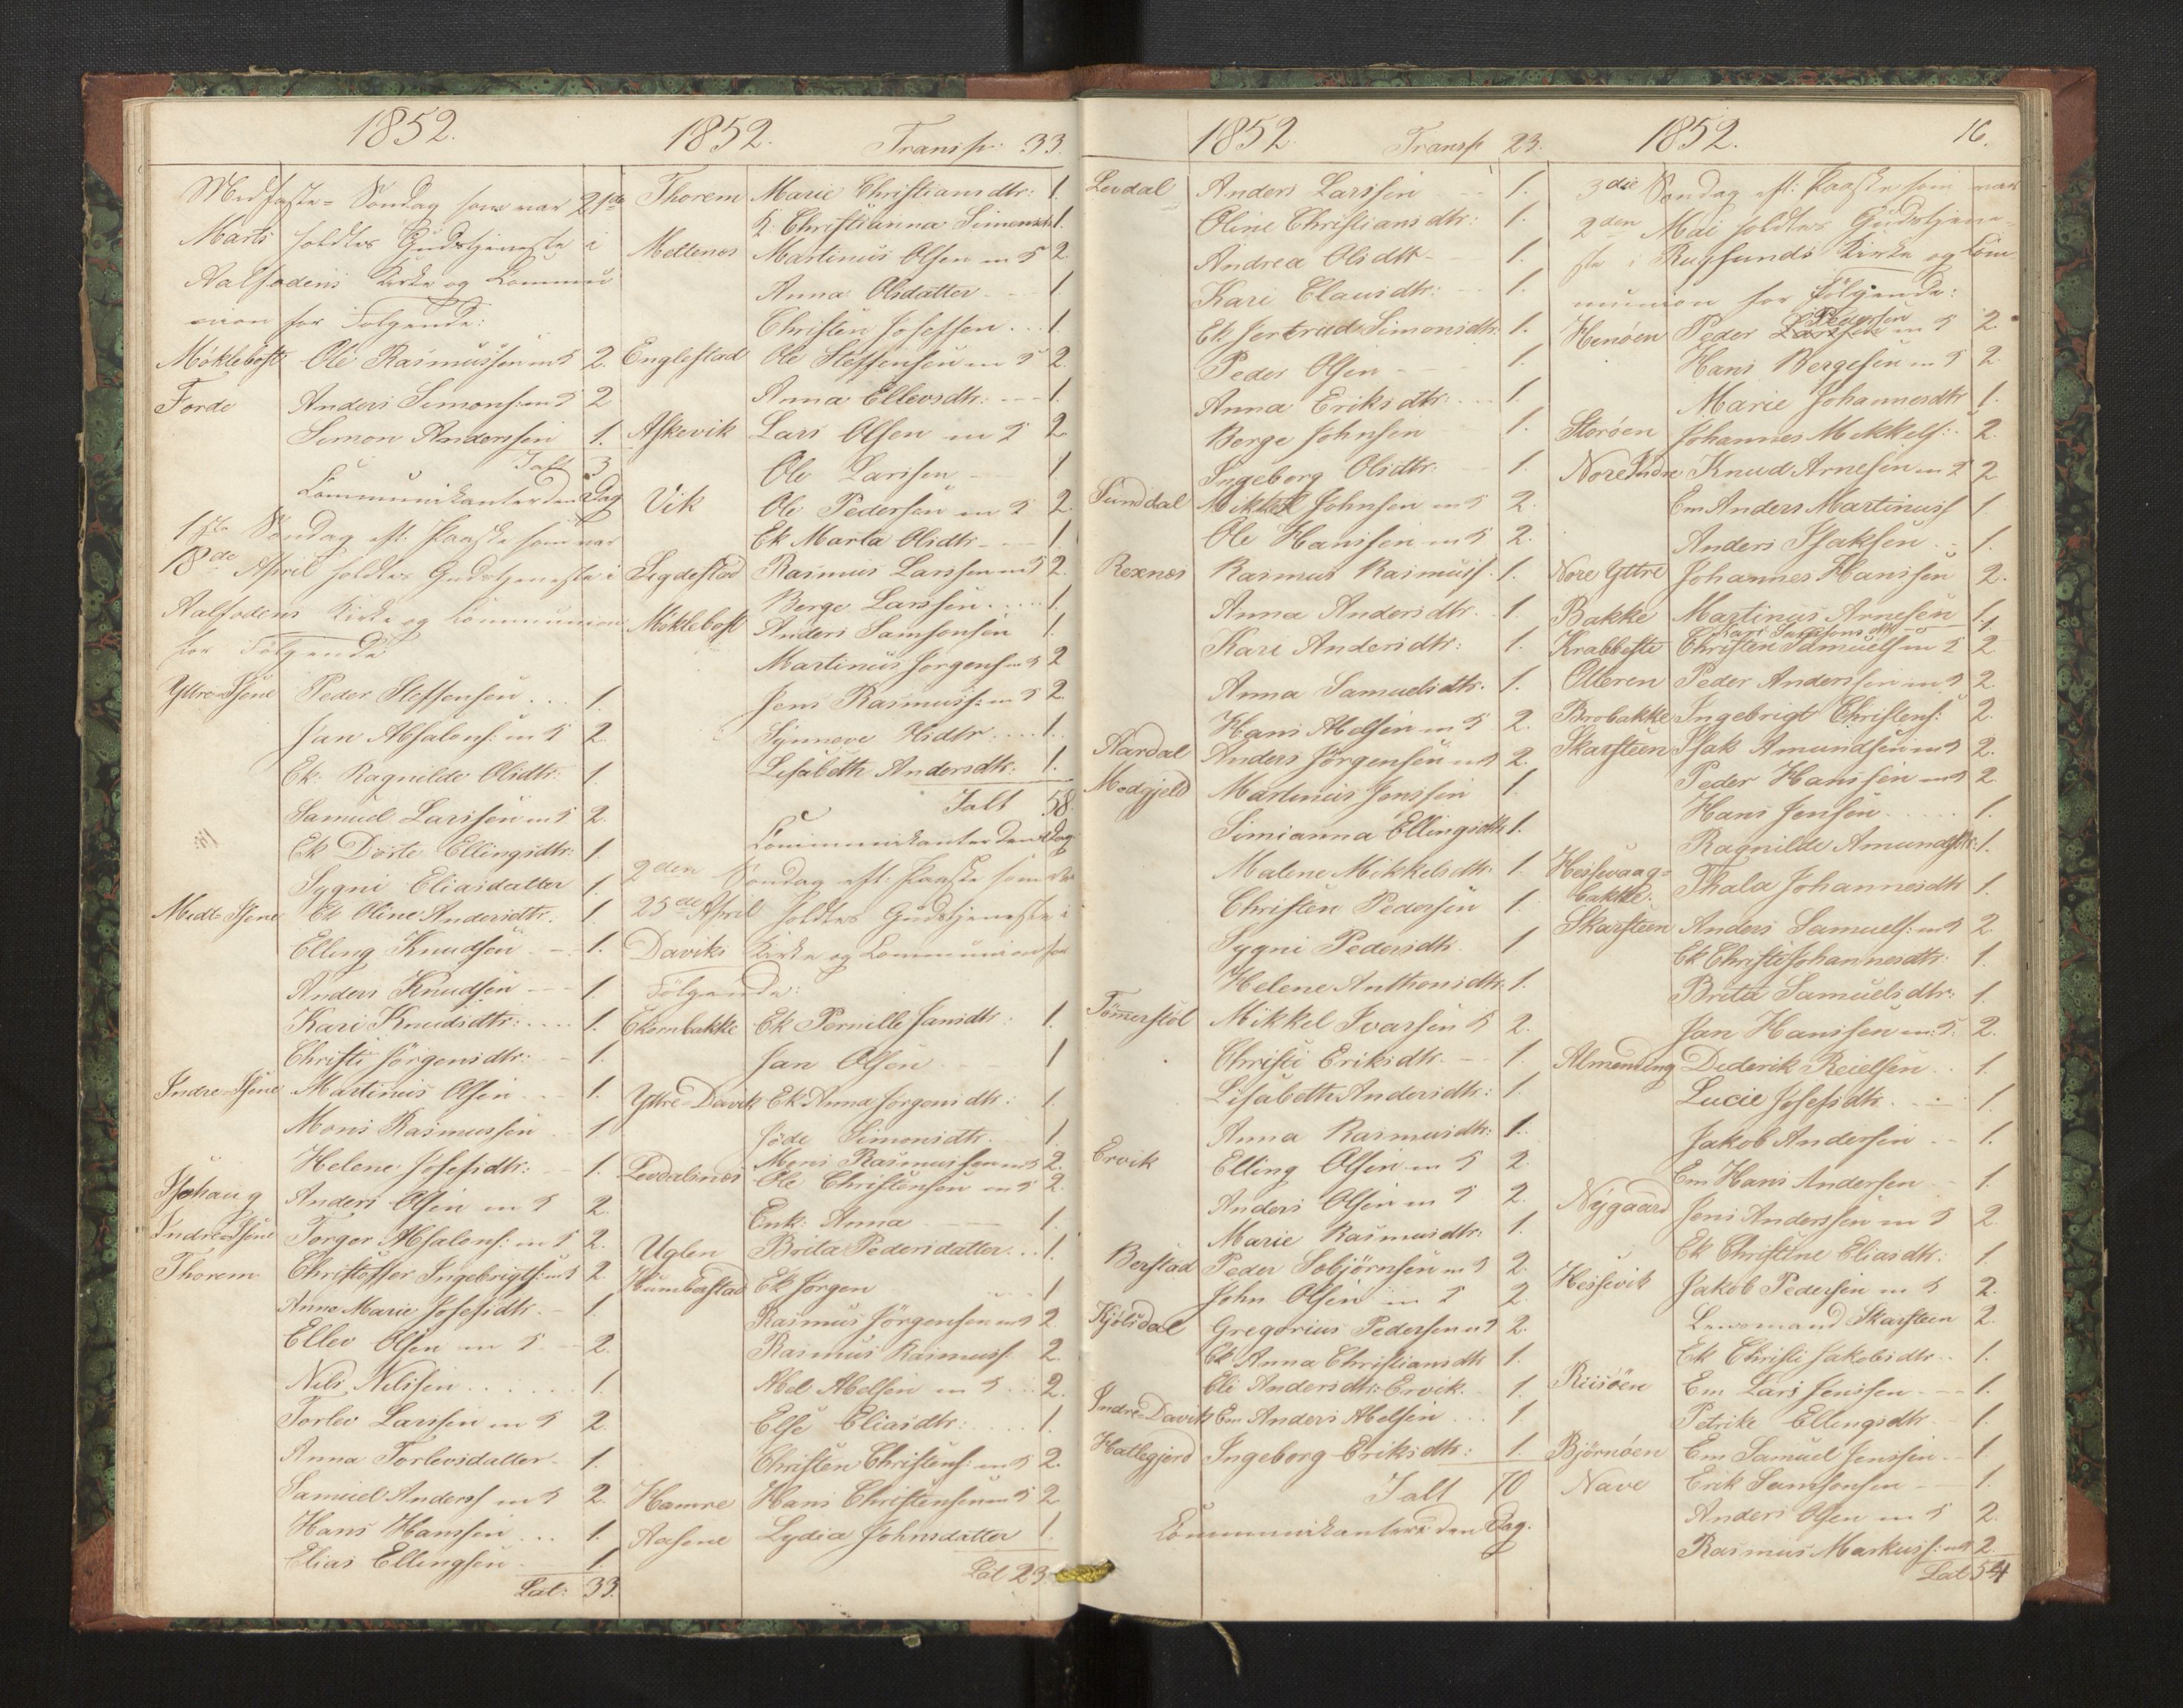 1852.
Midfaste-Søndag som var 21de
Marts holdtes Gudstjeneste i
Aalfodens Kirke og Commu
nion for Følgende:
Møklebost Ole Rasmussen m H 2.
Førde Anders Simons: m H 2
Simon Anderssen 1.
Ialt 3
Communikanter den Dag
1ste Søndag eft. Paaske som var
18de April holdtes Gudstjeneste i
Aalfodens Kirke og Communion
for Følgende
Yttre-Hjene Peder Steffensen 1.
Jan Absalons: m H 2.
Ek. Ragnilde Olsdtr: 1.
Samuel Larssen m H 2.
Ek Dorte Ellingsdtr: 1.
Sygni Eliasdatter 1.
Ek Oline Andersdtr. 1.
Elling Knudsen 1.
Anders Knudsen 1.
Kari Knudsdtr: 1.
Christi Jørgensdtr: 1.
Martinus Olsen 1.
Mons Rasmussen 1
Helene Josefsdtr: 1.
Anders Olsen m H 2.
Torger Absalons: m H 2.
Thorem Christoffer Ingebrigts: m H 2.
Anne Marie Josefsdtr. 1.
Ellev Olsen m H 2.
Nils Nilssen 1.
Torlev Larssen m H 2.
Anna Torlevsdatter 1.
Samuel Anderss m H 2.
Hans Hanssen 1.
Elias Ellingsen 1
Lat: 33.
1852. Transp: 33.
Thorem Marie Christiansdtr: 1.
Christianna Simensdtr 1.
Mettenes Martinus Olsen m H 2.
Anna Olsdatter 1.
Christen Josefsen 1.
Englestad Ole Steffensen m H 2.
Anna Ellevsdtr: 1.
Askevik Lars Olsen m H 2
Ole Larssen 1
Vik Ole Pedersen m H 2.
Ek Marta Olsdtr 1.
Sigdestad Rasmus Larssen m H 2.
Berge Larssen 1.
Møklebost Anders Samsonsen 1.
Martinus Jørgens m H 2
Jens Rasmuss: m H 2.
Synneve 1.
Lisabeth Andersdtr: 1.
Ialt 58.
Communikanter den Dag
2den Søndag eft. Paaske som var
25de April holdtes Gudstjeneste i
Daviks Kirke og Communion for
Følgende:
Ekornbakke Ek Pernille Jansdtr: 1.
Jan Olsen 1
Yttre-Davik Ek Anna Jørgensdtr: 1.
Simonsdtr. 1.
Mons Rasmussen m H 2.
Levdalsnes Ole Christensen m H 2.
Enk: Anna 1.
Uglen Brita Pedersdatter 1.
Humborstad Ek Jørgen 1
Rasmus Jørgensen m H 2.
Rasmus Rasmuss: 2.
Abel Abelsen m H 2.
Else Eliasdtr: 1.
Christen Christens: m H 2.
Hamre Hans Christensen m H 2
Aasene Lydia Johnsdatter 1.
Lat 23.
1852. Transp 23.
Levdal Anders Larssen 1.
Oline Christiansdtr: 1.
Andrea Olsdtr. 1.
Kari Clausdtr: 1.
Ek Jertrud Simonsdtr: 1.
Peder Olsen 1.
Anna Eriksdtr: 1.
Berge Johnsen 1.
Ingeborg Olsdtr. 1.
Sunddal Mikkel Johnsen m H 2.
Ole Hanssen m H 2.
Rexnes Rasmus Rasmuss. 1.
Anna Andersdtr. 1.
Kari Andersdtr: 1.
Anna Samuelsdtr. 1.
Hans Abelsen m H 2.
Aardal Anders Jørgensen m H 2.
Modgjeld Martinus Jenssen 1.
Simianna Ellingsdtr 1.
Malene Mikkelsdtr. 1.
Christen Pedersen 1.
Sygni Pedersdtr. 1
Helene Anthonsdtr: 1.
Tømmerstøl Mikkel Ivarsen H 2.
Christi Eriksdtr. 1.
Lisabeth Andersdtr: 1.
Anna Rasmusdtr: 1.
Ervik Elling Olsen m H 2.
Anders Olsen m H 2.
Marie Rasmusdtr: 1.
Berstad Peder Sobjørnsen m H 2.
John Olsen m H 2.
Kjølsdal Gregorius Pedersen m H 2.
Ek Anna Christiansdtr 1.
Eli Andersdtr: Ervik. 1.
Indre-Davik Em Anders Abelsen 1
Hatlegjerd Ingeborg Eriksdtr: 1.
Ialt 70
Communikanter den Dag.
1852. 16.
3die Søndag eft: Paaske som var
2den Mai holdtes Gudstjene-
ste i Rugsunds Kirke og Com-
munion for Følgende:
Pedersen
Henøen Peder Larssen m H 2.
Hans Bergesen m H 2
Marie Johannesdtr 1.
Storøen Johannes Mikkels: 2.
Nore Indre Knud Arnesen m H 2
Em Anders Martinuss 1
Anders Isaksen 1.
Nore Yttre Johannes Hanssen 2.
Bakke Martinus Arnesen 1.
Kari 1.
Krabbeste Christen Samuelsen H 2
Otteren Peder Anderssen m H 2.
Brobakke Ingebrigt Christens: 2.
Skarsteen Isak Amundsen m H 2.
Peder Hanssen m H 2
Hans Jensen 1.
Ragnilde Amundsdtr: 1.
Hessevaag-
bakke. Thala Johannesdtr 1.
Skarsteen Anders Samuels: m H 2
Ek Christi Johannesdtr: 1.
Brita Samuelsdtr: 1.
Jan Hanssen m H 2.
Almenning Dederik Reielsen 1.
Lucie Josefsdtr. 1.
Jakob Andersen 1.
Em Hans Andersen 1.
Nygaard Jens Anderssen m H 2
Ek Christine Eliasdtr: 1.
Hessevik Jakob Pedersen m H 2.
Lensmand Skarsteen 2.
Ek Christi Jakobsdtr. 1.
Riisøen Em Lars Jenssen 1.
Petrike Ellingsdtr 1.
Bjørnøen Em Samuel Jenssen 1
Nave Erik Samsonsen 1.
Anders Olsen m H 2.
Rasmus Markuss: m H 2.
Lat 54